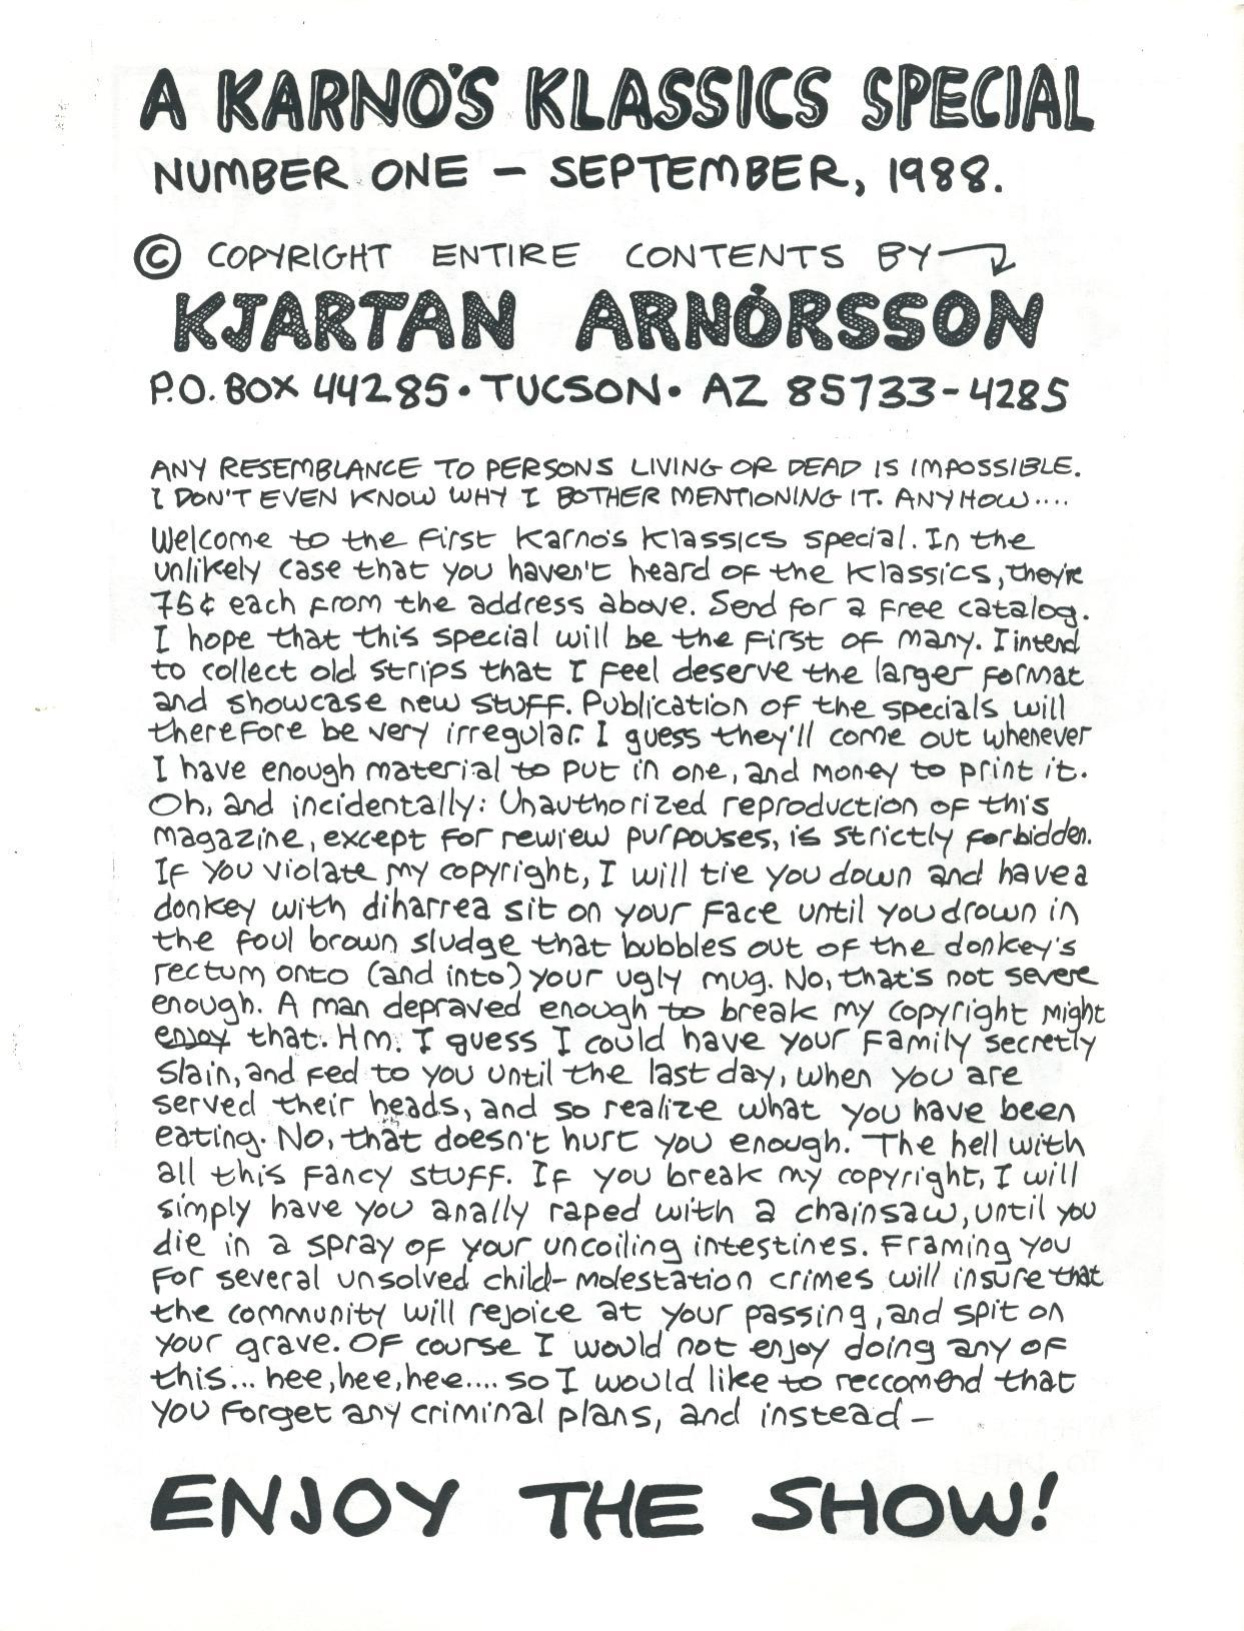 A KARNÓ'S KLASSICS SPECIAL
NUMBER ONE – SEPTEMBER, 1988.
© COPYRIGHT ENTIRE CONTENTS BY
KJARTAN ARNÓRSSON
P.O. BOX 44285 • TUCSON • AZ 85733-4285
ANY RESEMBLANCE TO PERSONS LIVING OR DEAD IS IMPOSSIBLE.
I DON'T EVEN KNOW WHY I BOTHER MENTIONING IT. ANYHOW....
Welcome to the first Karno's Klassics special. In the
unlikely case that you haven't heard of the Klassics, they're
75¢ each from the address above. Send for a free catalog.
I hope that this special will be the first of many. I intend
to collect old strips that I feel deserve the larger format
and showcase new stuff. Publication of the specials will
therefore be very irregular. I guess they'll come out whenever
I have enough material to put in one, and money to print it.
Oh, and incidentally: Unauthorized reproduction of this
magazine, except for rewiew purpouses, is strictly forbidden.
If you violate my copyright, I will tie you down and have a
donkey with diharrea sit on your face until you drown in
the foul brown sludge that bubbles out of the donkey's
rectum onto (and into) your ugly mug. No, that's not severe
enough. A man depraved enough to break my copyright might
enjoy that. Hm. I guess I could have your family secretly
slain, and fed to you until the last day, when you are
served their heads, and so realize what you have been
eating. No, that doesn't hurt you enough. The hell with
all this fancy stuff. If you break my copyright, I will
simply have you anally raped with a chainsaw, until you
die in a spray of your uncoiling intestines. Framing you
for several unsolved child-molestation crimes will insure that
the community will rejoice at your passing, and spit on
your grave. Of course I would not enjoy doing any of
this... hee, hee, hee.... so I would like to reccomend that
you forget any criminal plans, and instead –
ENJOY THE SHOW!